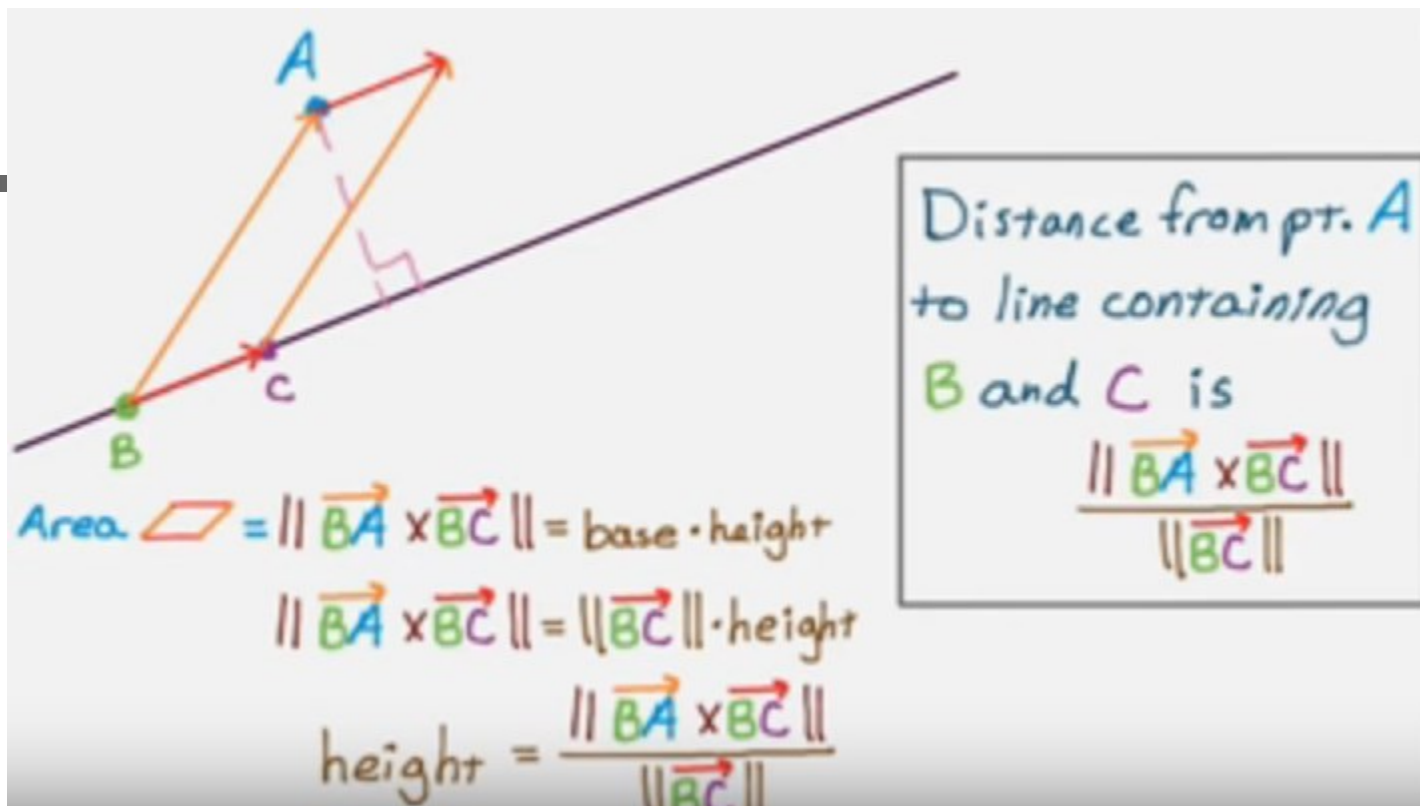 A
C
B
Area ▱ = || BA⃗ x BC⃗ || = base · height
|| BA⃗ x BC⃗ || = || BC⃗ || · height
height = || BA⃗ x BC⃗ || / || BC⃗ ||
Distance from pt. A
to line containing
B and C is
|| BA⃗ x BC⃗ ||
|| BC⃗ ||